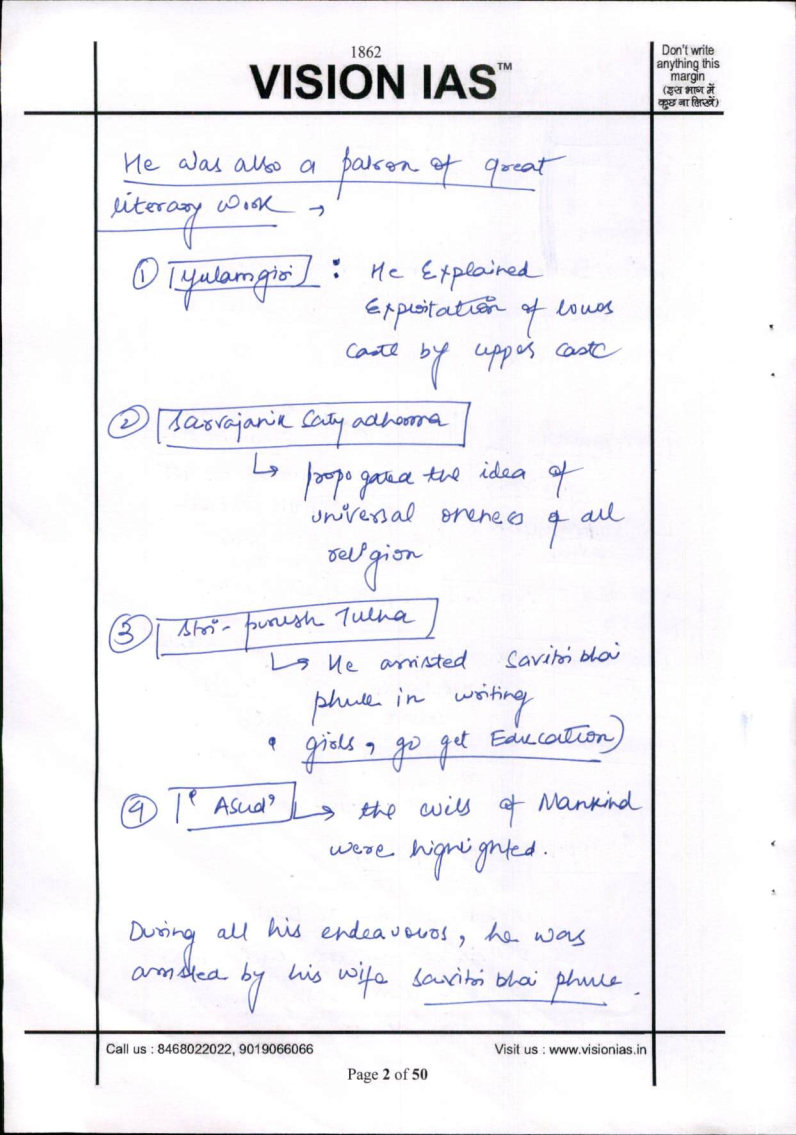 1862
VISION IAS™
Don't write
anything this
margin
(इस भाग में
कुछ ना लिखें)
He was also a patron of great
literary work →
① Gulamgiri : He Explained
Exploitation of lower
caste by upper caste
② Sarvajanik Satyadharma
↳ propogated the idea of
universal oneness of all
religion
③ Stri-purush Tulna
↳ He assisted Savitri bhai
phule in writing
' girls, go get Education)
④ 'Asud' ↳ the evils of Mankind
were highlighted.
During all his endeavours, he was
assisted by his wife Savitri bhai phule.
Call us : 8468022022, 9019066066
Visit us : www.visionias.in
Page 2 of 50